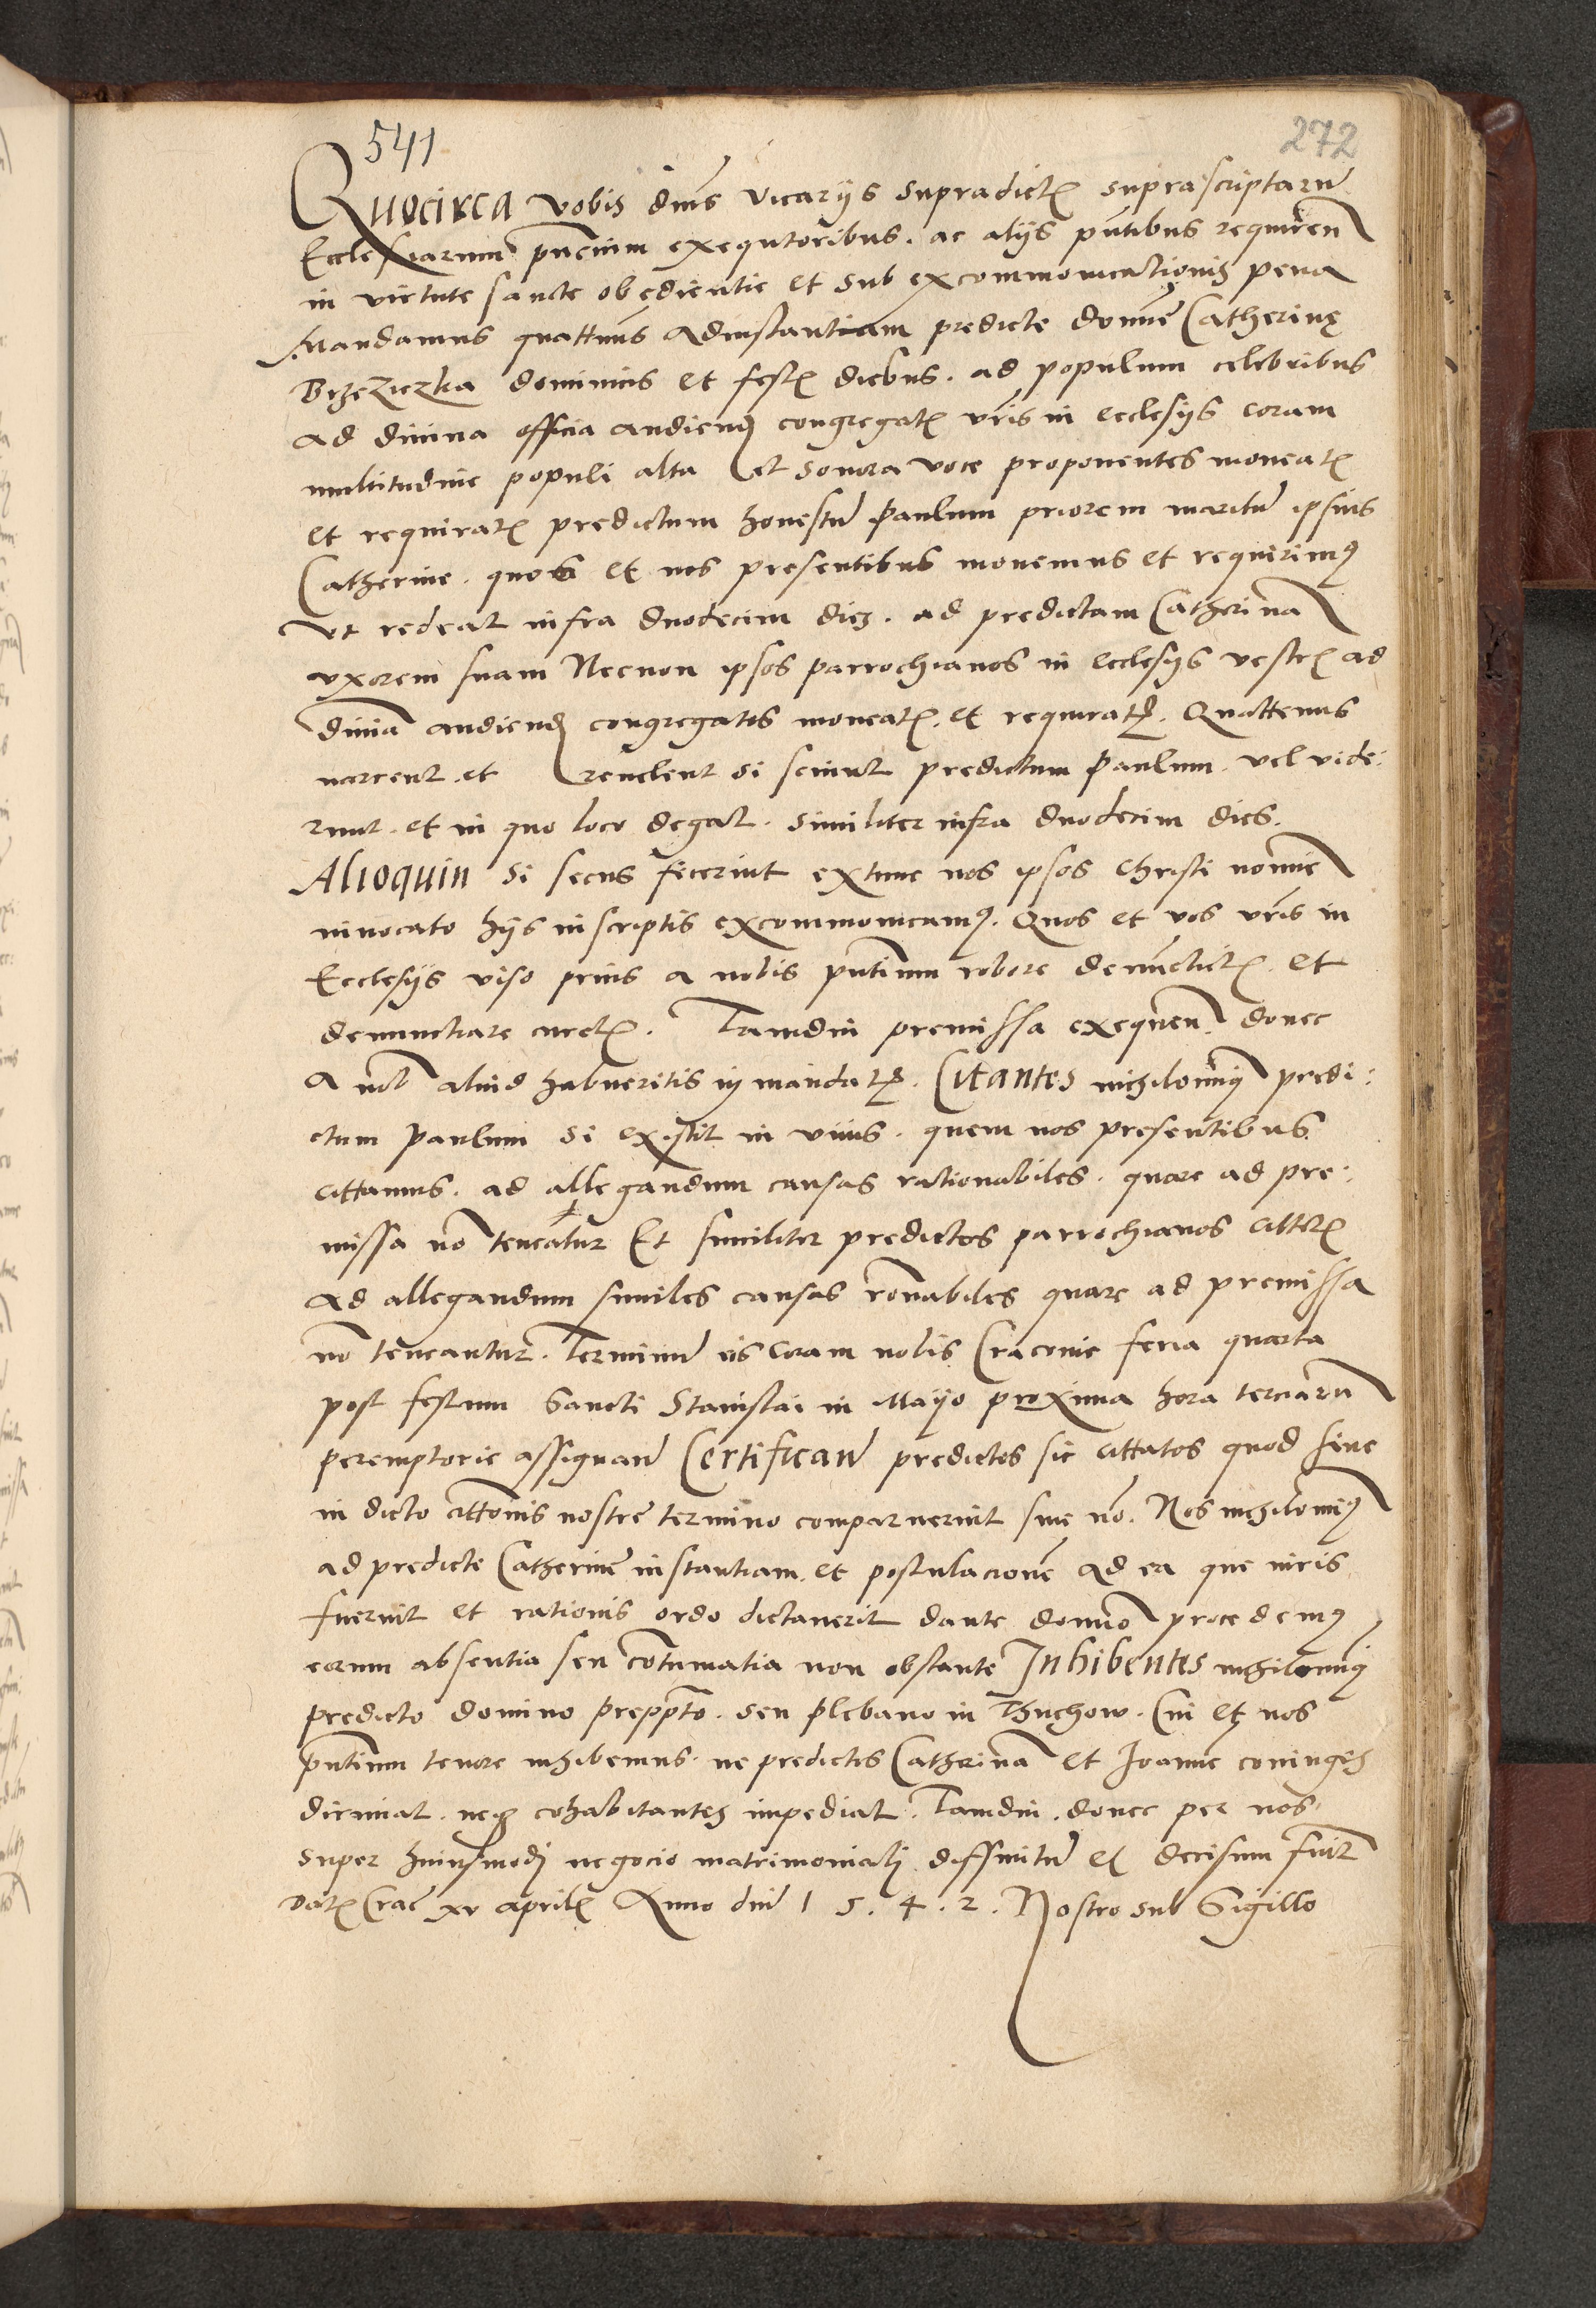 541
272
Quocirca vobis dnis vicarijs supradict suprascriptaru
Ecclesiarum pnencium exequtoribus. ac alijs pntibus requiren
in virtute sancte obędientie et sub excommonicationis pena
Mandamus quattenus ad instantiam predicte domine Catherinę
Brzeziczka dominicis et fest diebus. ad populum celebribus
ad diuina officia audiend congregat vris in Ecclesijs coram
multitudine populi alta et sonora voce proponentes moneat
et requirat predictum honestu Paulum priorem maritu ipsius
Catherine. quos et nos presentibus monemus et requirimus
vt redeat infra duodecim dies. ad predictam Catherina
vxorem suam Necnon ipsos parrochianos in Ecclesijs vestr ad
diuina audiend congregatos moneat. et requirat. Quattenus
narrent et reuelent si sciunt predictum Paulum. vel vide:
runt. et in quo loco degat. similiter infra duodecim dies.
Alioquin si secus fecerint extunc nos ipsos Christi nomine
inuocato hijs in scriptis excommonicamus. Quos et vos vris in
Ecclesijs viso prius a nobis pntium robore denunctiet. et
denunctiare curet. Tamdiu premissa exequen donec
a nob aliud habueritis in mandat. Citantes nichilominus predi:
ctum Paulum si existit in viuis. quem nos presentibus
cittamus. ad allegandum causas rationabiles. quare ad pre:
missa no teneatur Et similiter predictos parrochianos cittet
ad allegandum similes causas ronabiles quare ad premissa
no teneantur. Terminu eis coram nobis Cracouie feria quarta
post festum Sancti Stanislai in Mayo proxima hora terciaru
peremptorie assignan Certifican predictos sic cittatos quod siue
in dicto cittonis nostre termino comparuerint siue no. Nos nichilominus
ad predicte Catherine instantiam et postulacione ad ea que iuris
fuerint et rationis ordo dictauerit dante domino procedemus
eorum absentia seu contumatia non obstante Inhibentes nichilominus
predicto domino preppto. seu plebano in Thuchow. Cui et nos
pntium tenore inhibemus. ne predictis Catherina et Joanne coniuges
dirimat. neq cohabitantes impediat. Tamdiu. donec per nos
super huiusmodi negocio matrimoniali diffinitu et decisum fuit
Dat Crac xv April Anno dni 1 5. 4. 2. Nostro sub Sigillo